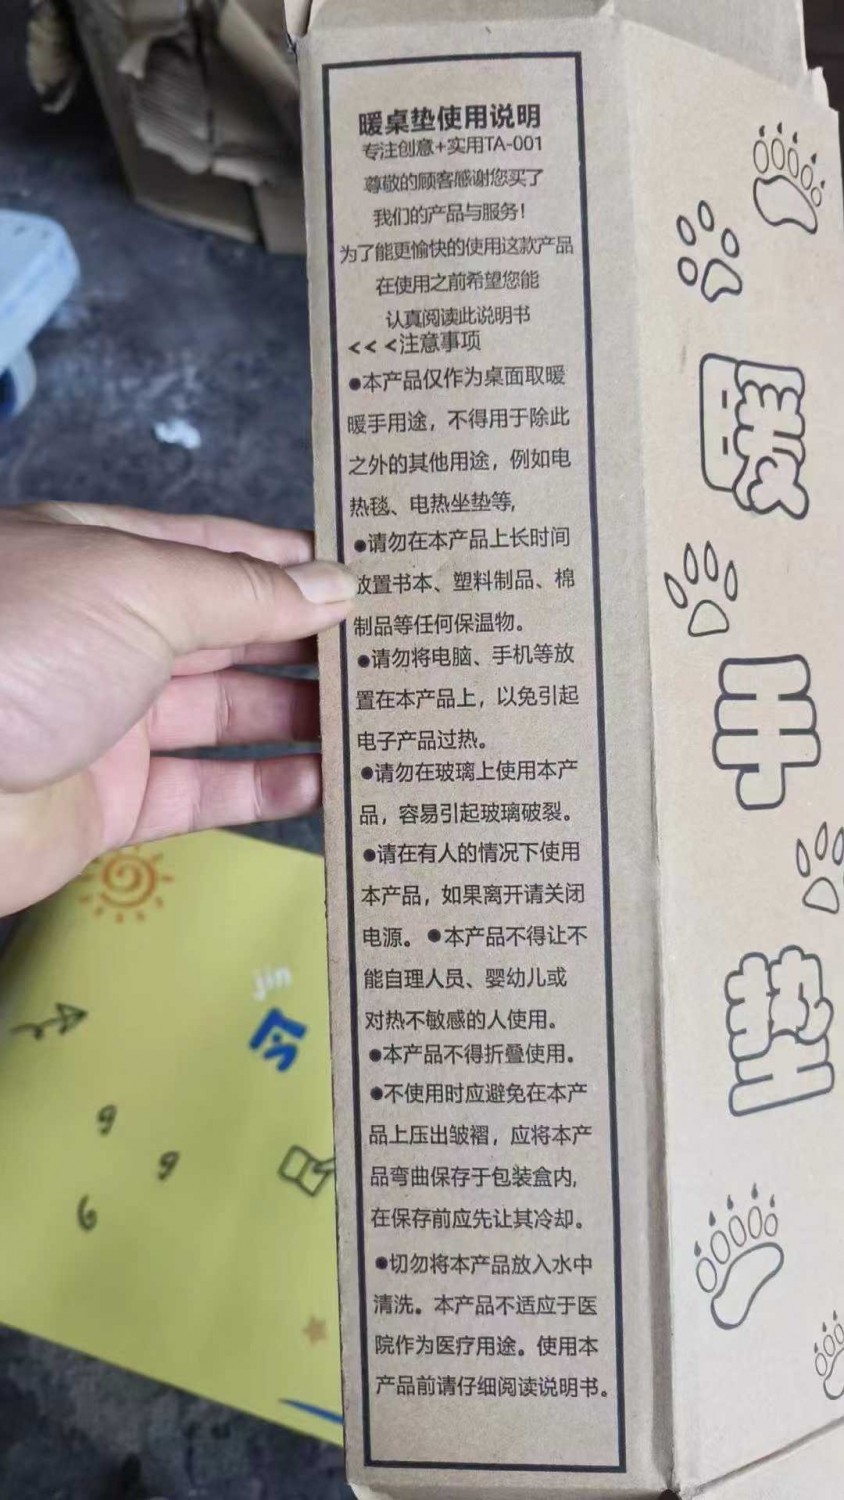 暖桌垫使用说明
专注创意+实用TA-001
尊敬的顾客感谢您买了
我们的产品与服务!
为了能更愉快的使用这款产品
在使用之前希望您能
认真阅读此说明书
<<<注意事项
●本产品仅作为桌面取暖
暖手用途，不得用于除此
之外的其他用途，例如电
热毯、电热坐垫等,
●请勿在本产品上长时间
放置书本、塑料制品、棉
制品等任何保温物。
●请勿将电脑、手机等放
置在本产品上，以免引起
电子产品过热。
●请勿在玻璃上使用本产
品，容易引起玻璃破裂。
●请在有人的情况下使用
本产品，如果离开请关闭
电源。●本产品不得让不
能自理人员、婴幼儿或
对热不敏感的人使用。
●本产品不得折叠使用。
●不使用时应避免在本产
品上压出皱褶，应将本产
品弯曲保存于包装盒内,
在保存前应先让其冷却。
●切勿将本产品放入水中
清洗。本产品不适应于医
院作为医疗用途。使用本
产品前请仔细阅读说明书。
暖手垫
jin
今
9
9
6